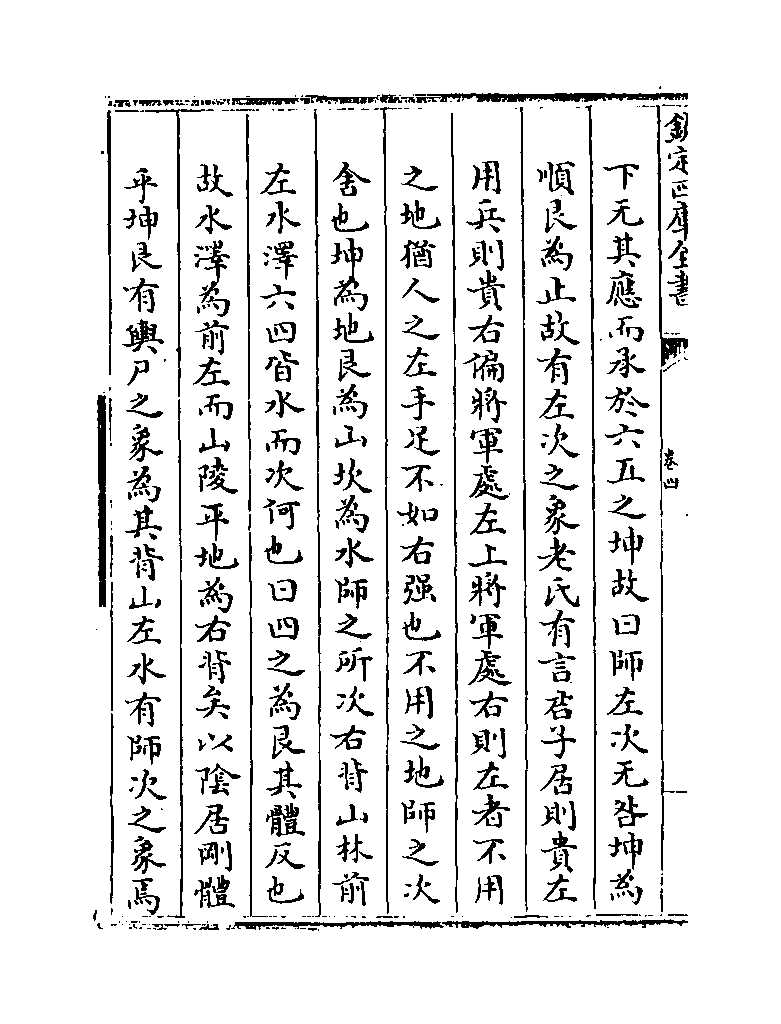 欽定四庫全書
卷四
下无其應而承於六五之坤故曰師左次无咎坤為
順艮為止故有左次之象老氏有言君子居則貴左
用兵則貴右偏將軍處左上將軍處右則左者不用
之地猶人之左手足不如右强也不用之地師之次
舍也坤為地艮為山坎為水師之所次右背山林前
左水澤六四皆水而次何也曰四之為艮其體反也
故水澤為前左而山陵平地為右背矣以陰居剛體
乎坤艮有輿尸之象為其背山左水有師次之象焉